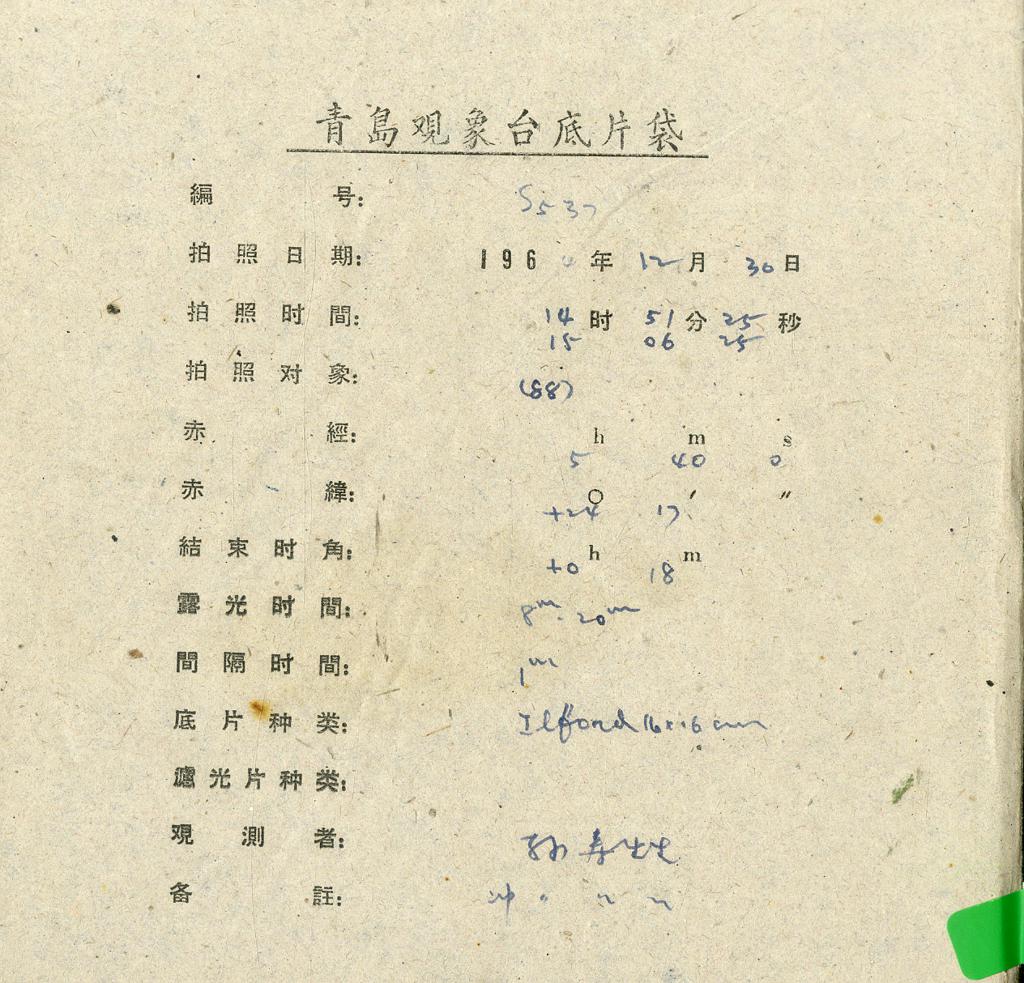 青島观象台底片袋
編 号: S537
拍照日期: 196 年 12月 30日
拍照时間: 14时 51分 25秒
15 06 25
拍照对象: (88)
赤 經: 5h 40m 0s
赤 緯: +24° 17′ ″
結束时角: +0h 18m
露光时間: 8m 20m
間隔时間: 1m
底片种类: Ilford 16×16 cm
濾光片种类:
观測者: 孙寿
备 註: 冲 " " "